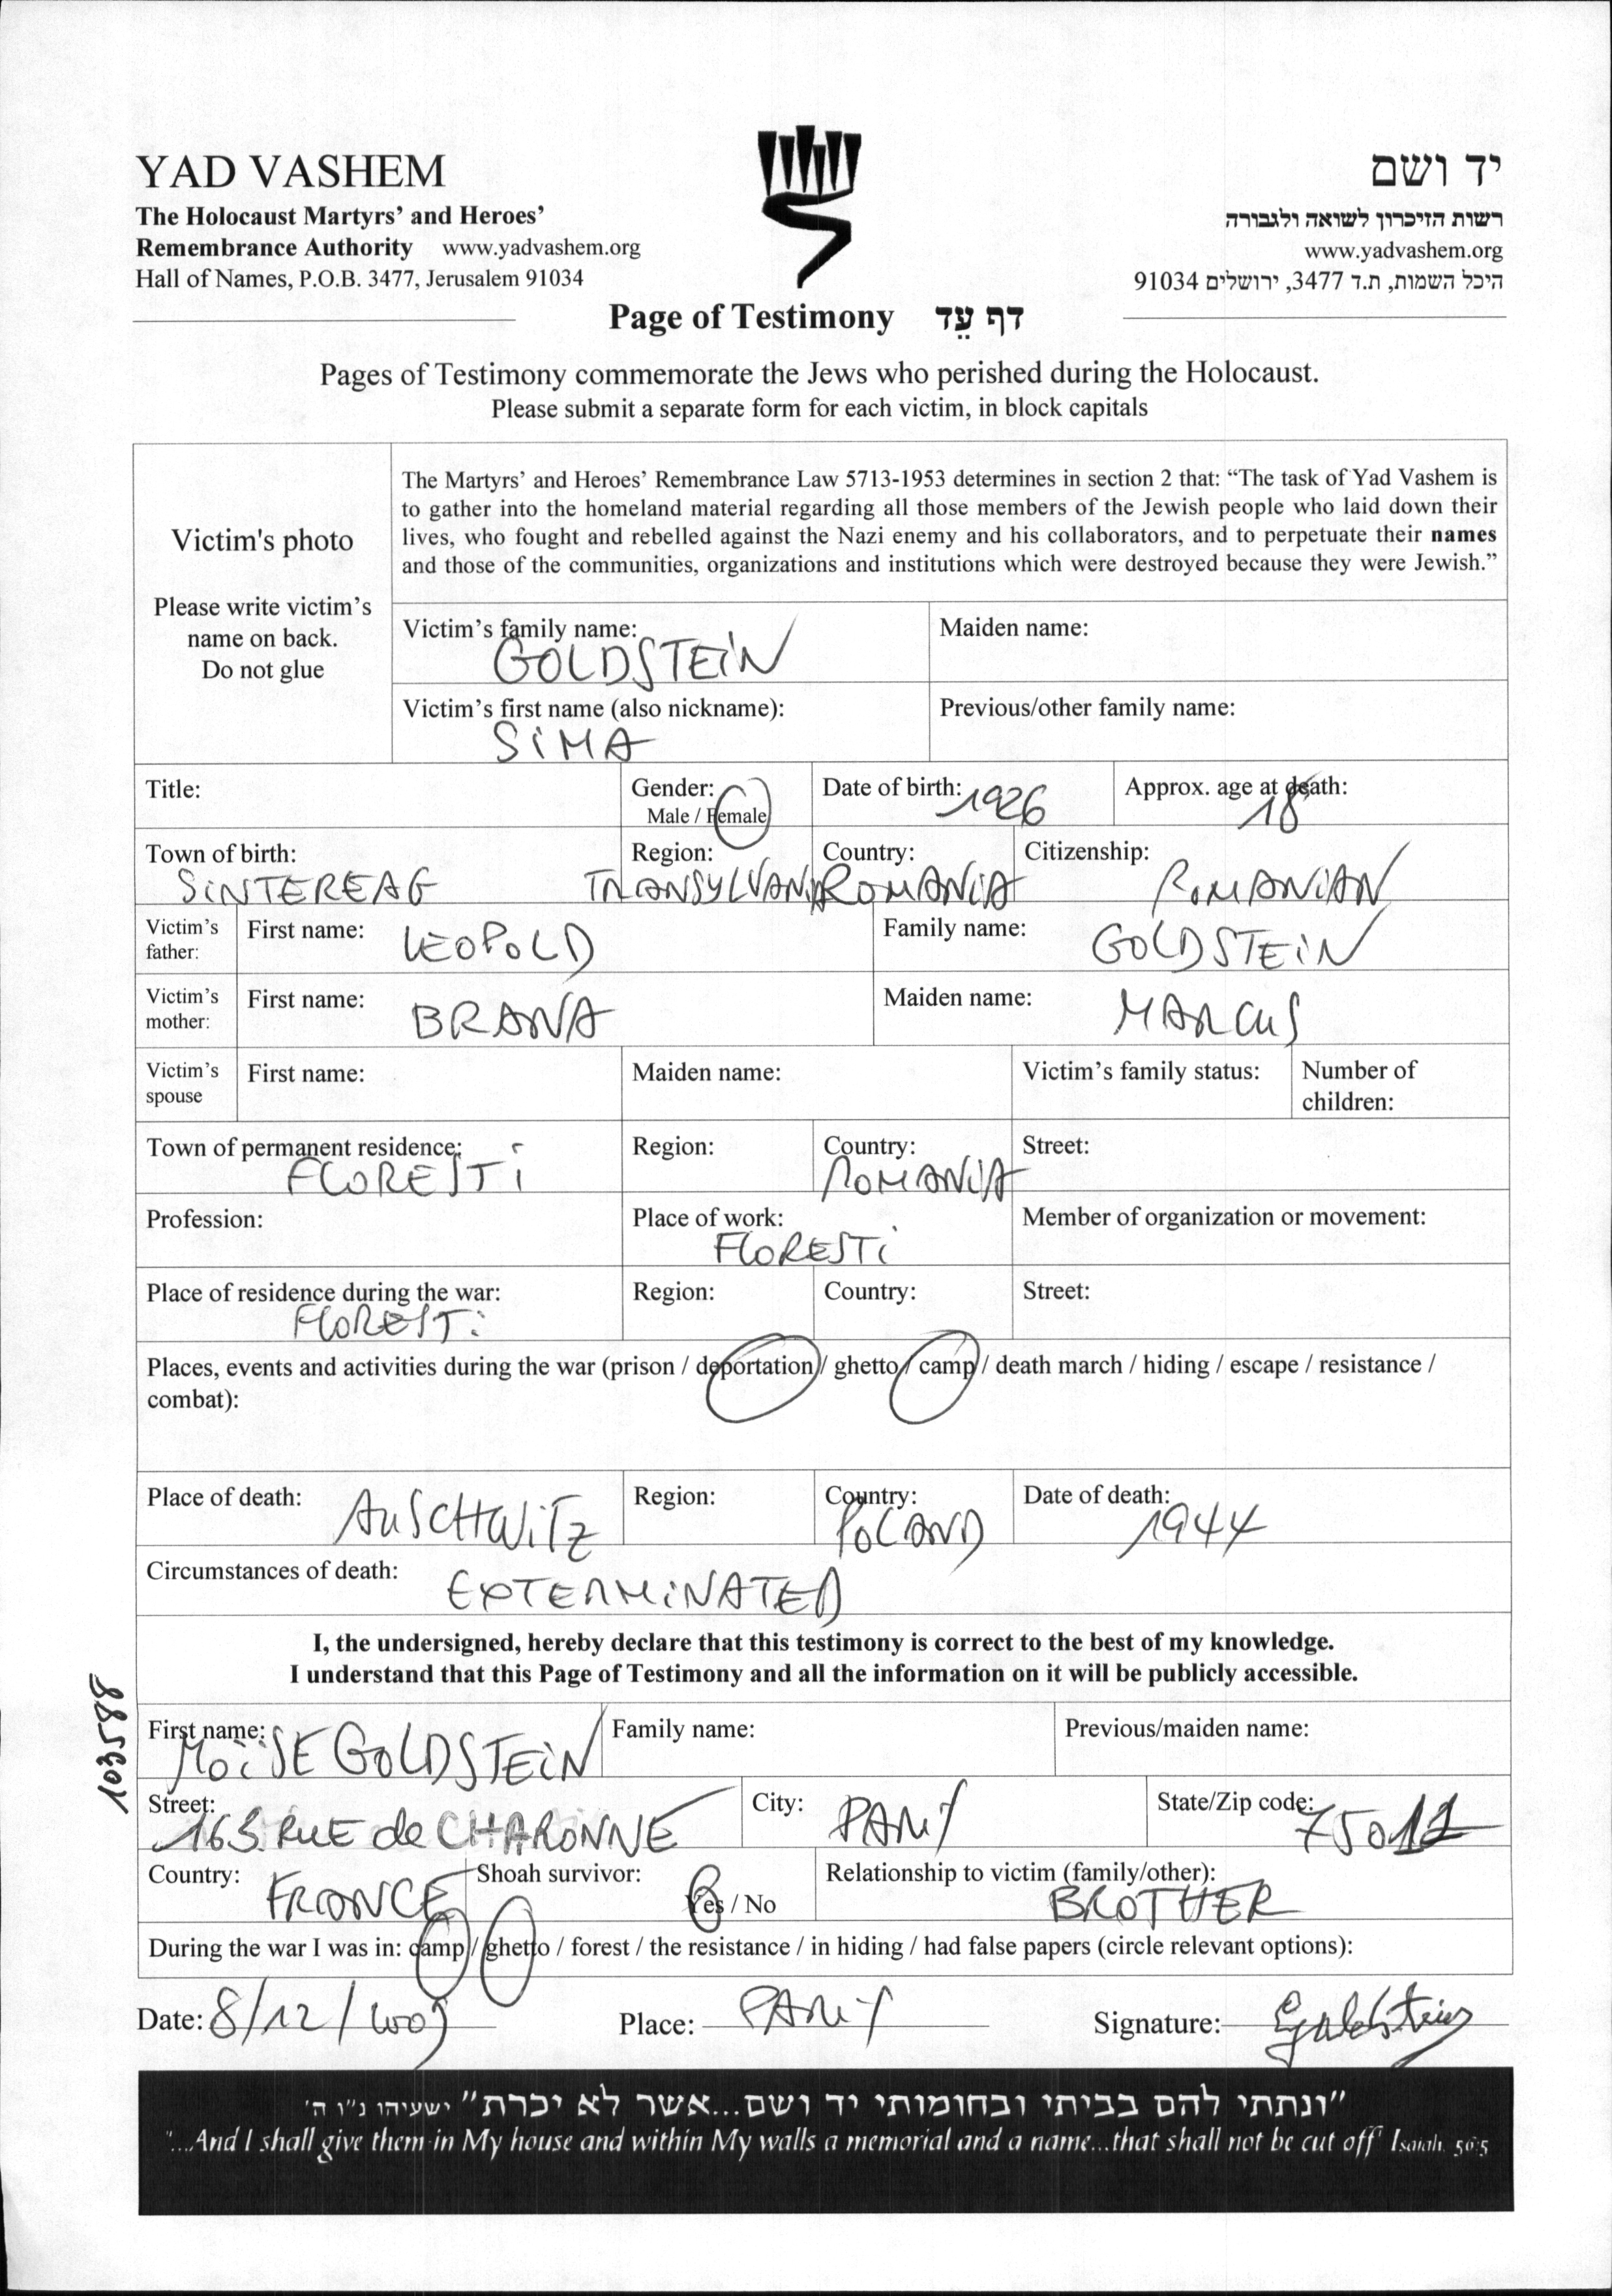 YAD VASHEM
The Holocaust Martyrs' and Heroes'
Remembrance Authority www.yadvashem.org
Hall of Names, P.O.B. 3477, Jerusalem 91034
יד ושם
רשות הזיכרון לשואה ולגבורה
www.yadvashem.org
היכל השמות, ת.ד 3477, ירושלים 91034
Page of Testimony דף עֵד
Pages of Testimony commemorate the Jews who perished during the Holocaust.
Please submit a separate form for each victim, in block capitals
Victim's photo
Please write victim's
name on back.
Do not glue
The Martyrs' and Heroes' Remembrance Law 5713-1953 determines in section 2 that: "The task of Yad Vashem is
to gather into the homeland material regarding all those members of the Jewish people who laid down their
lives, who fought and rebelled against the Nazi enemy and his collaborators, and to perpetuate their names
and those of the communities, organizations and institutions which were destroyed because they were Jewish."
Victim's family name: GOLDSTEIN
Maiden name:
Victim's first name (also nickname): SIMA
Previous/other family name:
Title:
Gender: Male / Female
Date of birth: 1926
Approx. age at death: 18
Town of birth: SINTEREAG
Region: TRANSYLVANIA
Country: ROMANIA
Citizenship: ROMANIAN
Victim's father: First name: LEOPOLD
Family name: GOLDSTEIN
Victim's mother: First name: BRANA
Maiden name: MARCUS
Victim's spouse First name:
Maiden name:
Victim's family status:
Number of children:
Town of permanent residence: FLORESTI
Region:
Country: ROMANIA
Street:
Profession:
Place of work: FLORESTI
Member of organization or movement:
Place of residence during the war: FLORESTI
Region:
Country:
Street:
Places, events and activities during the war (prison / deportation / ghetto / camp / death march / hiding / escape / resistance /
combat):
Place of death: AUSCHWITZ
Region:
Country: POLAND
Date of death: 1944
Circumstances of death: EXTERMINATED
I, the undersigned, hereby declare that this testimony is correct to the best of my knowledge.
I understand that this Page of Testimony and all the information on it will be publicly accessible.
103588
First name: MOÏSE GOLDSTEIN
Family name:
Previous/maiden name:
Street: 163 RUE de CHARONNE
City: PARIS
State/Zip code: 75011
Country: FRANCE
Shoah survivor: Yes / No
Relationship to victim (family/other): BROTHER
During the war I was in: camp / ghetto / forest / the resistance / in hiding / had false papers (circle relevant options):
Date: 8/12/2009
Place: PARIS
Signature: Goldstein
"ונתתי להם בביתי ובחומותי יד ושם...אשר לא יכרת" ישעיהו נ"ו ה'
"...And I shall give them in My house and within My walls a memorial and a name...that shall not be cut off" Isaiah. 56:5